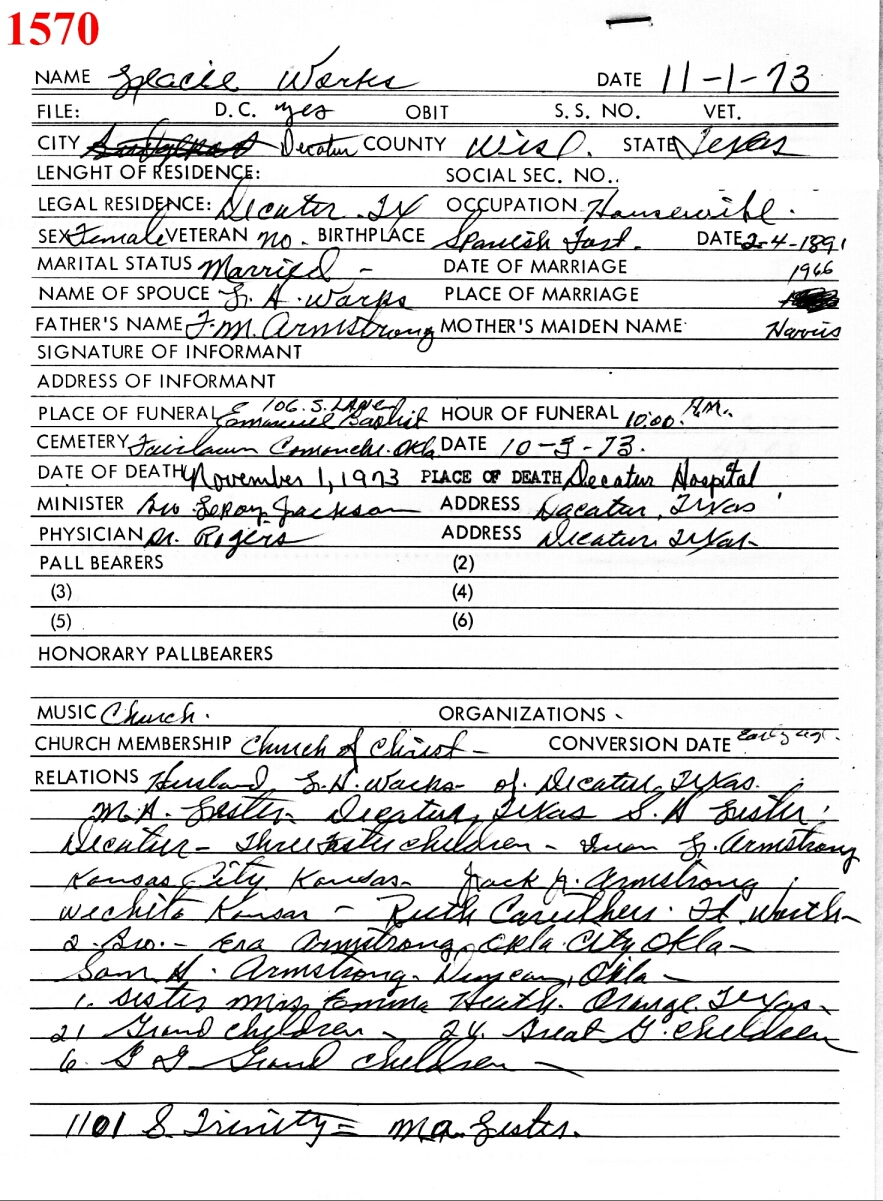 1570
NAME Gracie Works DATE 11-1-73
FILE: D.C. yes OBIT S. S. NO. VET.
CITY Decatur COUNTY Wise. STATE Texas
LENGHT OF RESIDENCE: SOCIAL SEC. NO..
LEGAL RESIDENCE: Decatur TX OCCUPATION Housewife.
SEX Female VETERAN no. BIRTHPLACE Spanish Fort. DATE 2-4-1891
MARITAL STATUS Married - DATE OF MARRIAGE 1966
NAME OF SPOUCE L. H. Works PLACE OF MARRIAGE
FATHER'S NAME F.M. Armstrong MOTHER'S MAIDEN NAME Harris
SIGNATURE OF INFORMANT
ADDRESS OF INFORMANT
PLACE OF FUNERAL 106. S. Lane Emmanuel Baptist HOUR OF FUNERAL 10:00. A.M.
CEMETERY Fairlawn Comanche. Okla DATE 10-3-73.
DATE OF DEATH November 1, 1973 PLACE OF DEATH Decatur Hospital
MINISTER Bro LeRoy Jackson ADDRESS Dacatur, Texas
PHYSICIAN Dr. Rogers ADDRESS Decatur Texas
PALL BEARERS (2)
(3) (4)
(5) (6)
HONORARY PALLBEARERS
MUSIC Church. ORGANIZATIONS -
CHURCH MEMBERSHIP Church of Christ - CONVERSION DATE Early
RELATIONS Husband L. H. Works - of Decatur, Texas.
M.A. Lester - Decatur, Texas S. H Lester.
Decatur - Three foster children - L. Armstrong
Kansas City Kansas - Jack A. Armstrong
Wechita Kansas - Ruth Caruthers. Ft. Worth -
2. Bro. - Era Armstrong, Okla. City Okla -
Sam H. Armstrong - Duncan, Okla -
1. sister Mrs Emma Heath. Orange. Texas -
21 Grand children - 24. Great G. children
6. G G Grand children -
1101 S. Trinity = M A. Lester.